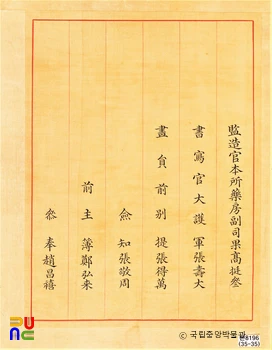 監造官本所藥房副司果高挺叅
書寫官大護軍張壽大
畫員前别提張得萬
僉知張敬周
前主簿鄭弘來
叅奉趙昌禧
PUNC
© 국립중앙박물관
(35-35)